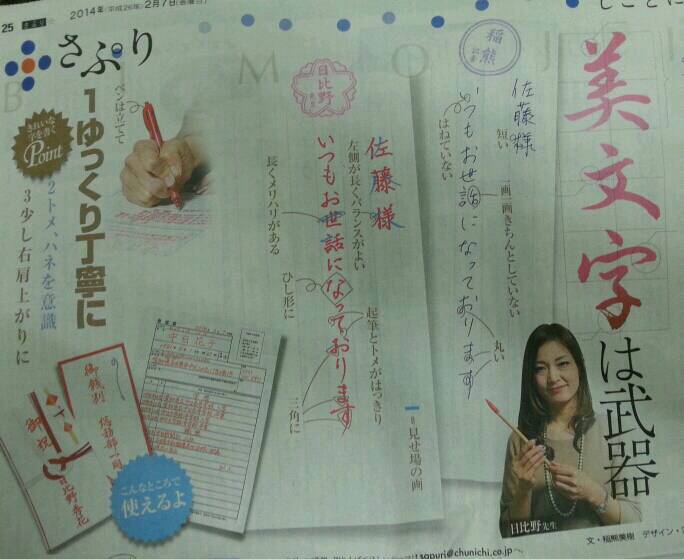 25
2014年(平成26年)2月7日(金曜日)
さぷり
美文字は武器
稲熊
佐藤様
短い
いつもお世話になっております
はねていない
一画一画きちんとしていない
丸い
日比野
佐藤様
左側が長くバランスがよい
いつもお世話になっております
長くメリハリがある
ひし形に
起筆とトメがはっきり
三角に
=見せ場の画
ペンは立てて
きれいな
字を書く
Point
1ゆっくり丁寧に
2トメ、ハネを意識
3少し右肩上がりに
中日花子
御餞別
御祝
日比野香花
こんなところで
使えるよ
日比野先生
文・稲熊美樹
デザイン・
sapuri@chunichi.co.jpへ